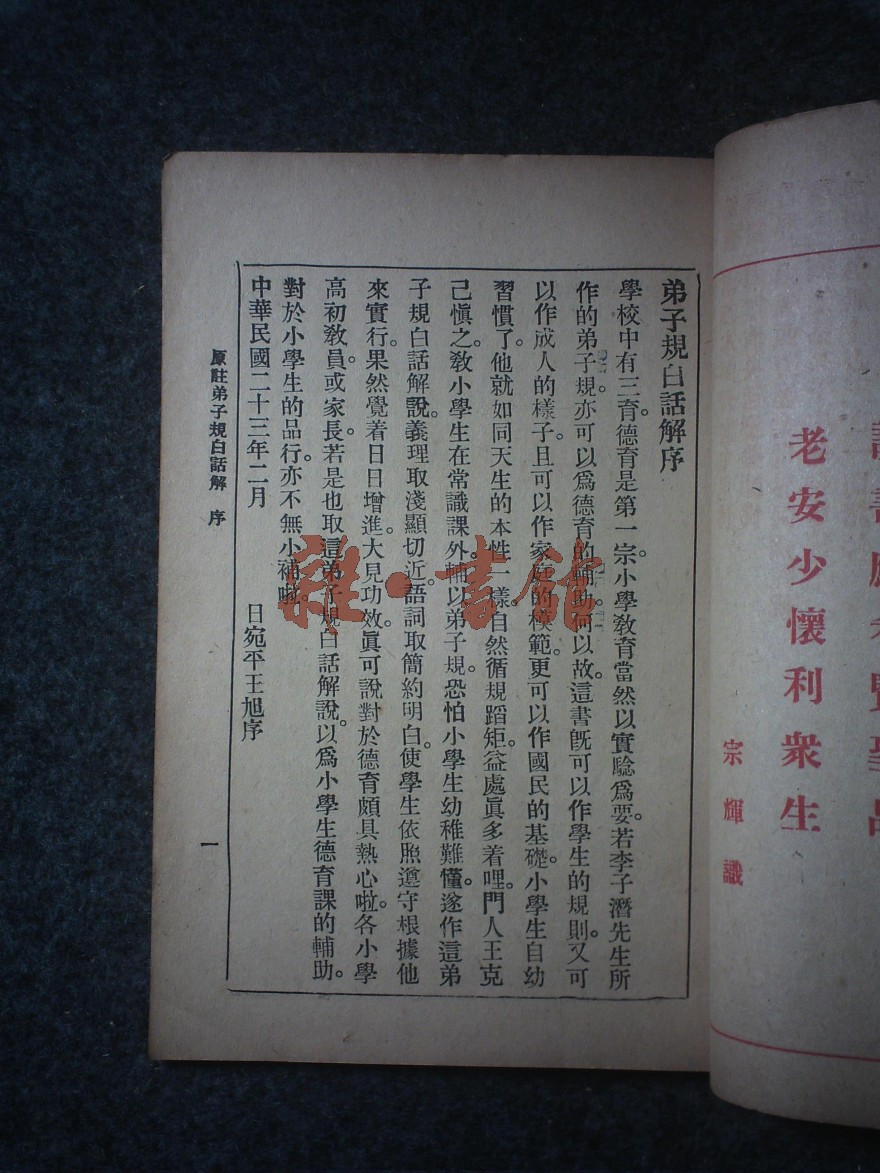 老安少懷利衆生
宗輝識
弟子規白話解序
學校中有三育。德育是第一宗。小學教育當然以實驗爲要。若李子潛先生所
作的弟子規。亦可以爲德育的輔助。何以故。這書旣可以作學生的規則。又可
以作成人的樣子。且可以作家庭的模範。更可以作國民的基礎。小學生自幼
習慣了。他就如同天生的本性一樣。自然循規蹈矩。益處眞多着哩。門人王克
己愼之。敎小學生在常識課外。輔以弟子規。恐怕小學生幼稚難懂。遂作這弟
子規白話解說。義理取淺顯切近。語詞取簡約明白。使學生依照遵守。根據他
來實行。果然覺着日日增進。大見功效。眞可說對於德育頗具熱心啦。各小學
高初敎員。或家長。若是也取這弟子規白話解說。以爲小學生德育課的輔助。
對於小學生的品行。亦不無小補啦。
中華民國二十三年二月　日宛平王旭序
原註弟子規白話解　序
一
雜·書館